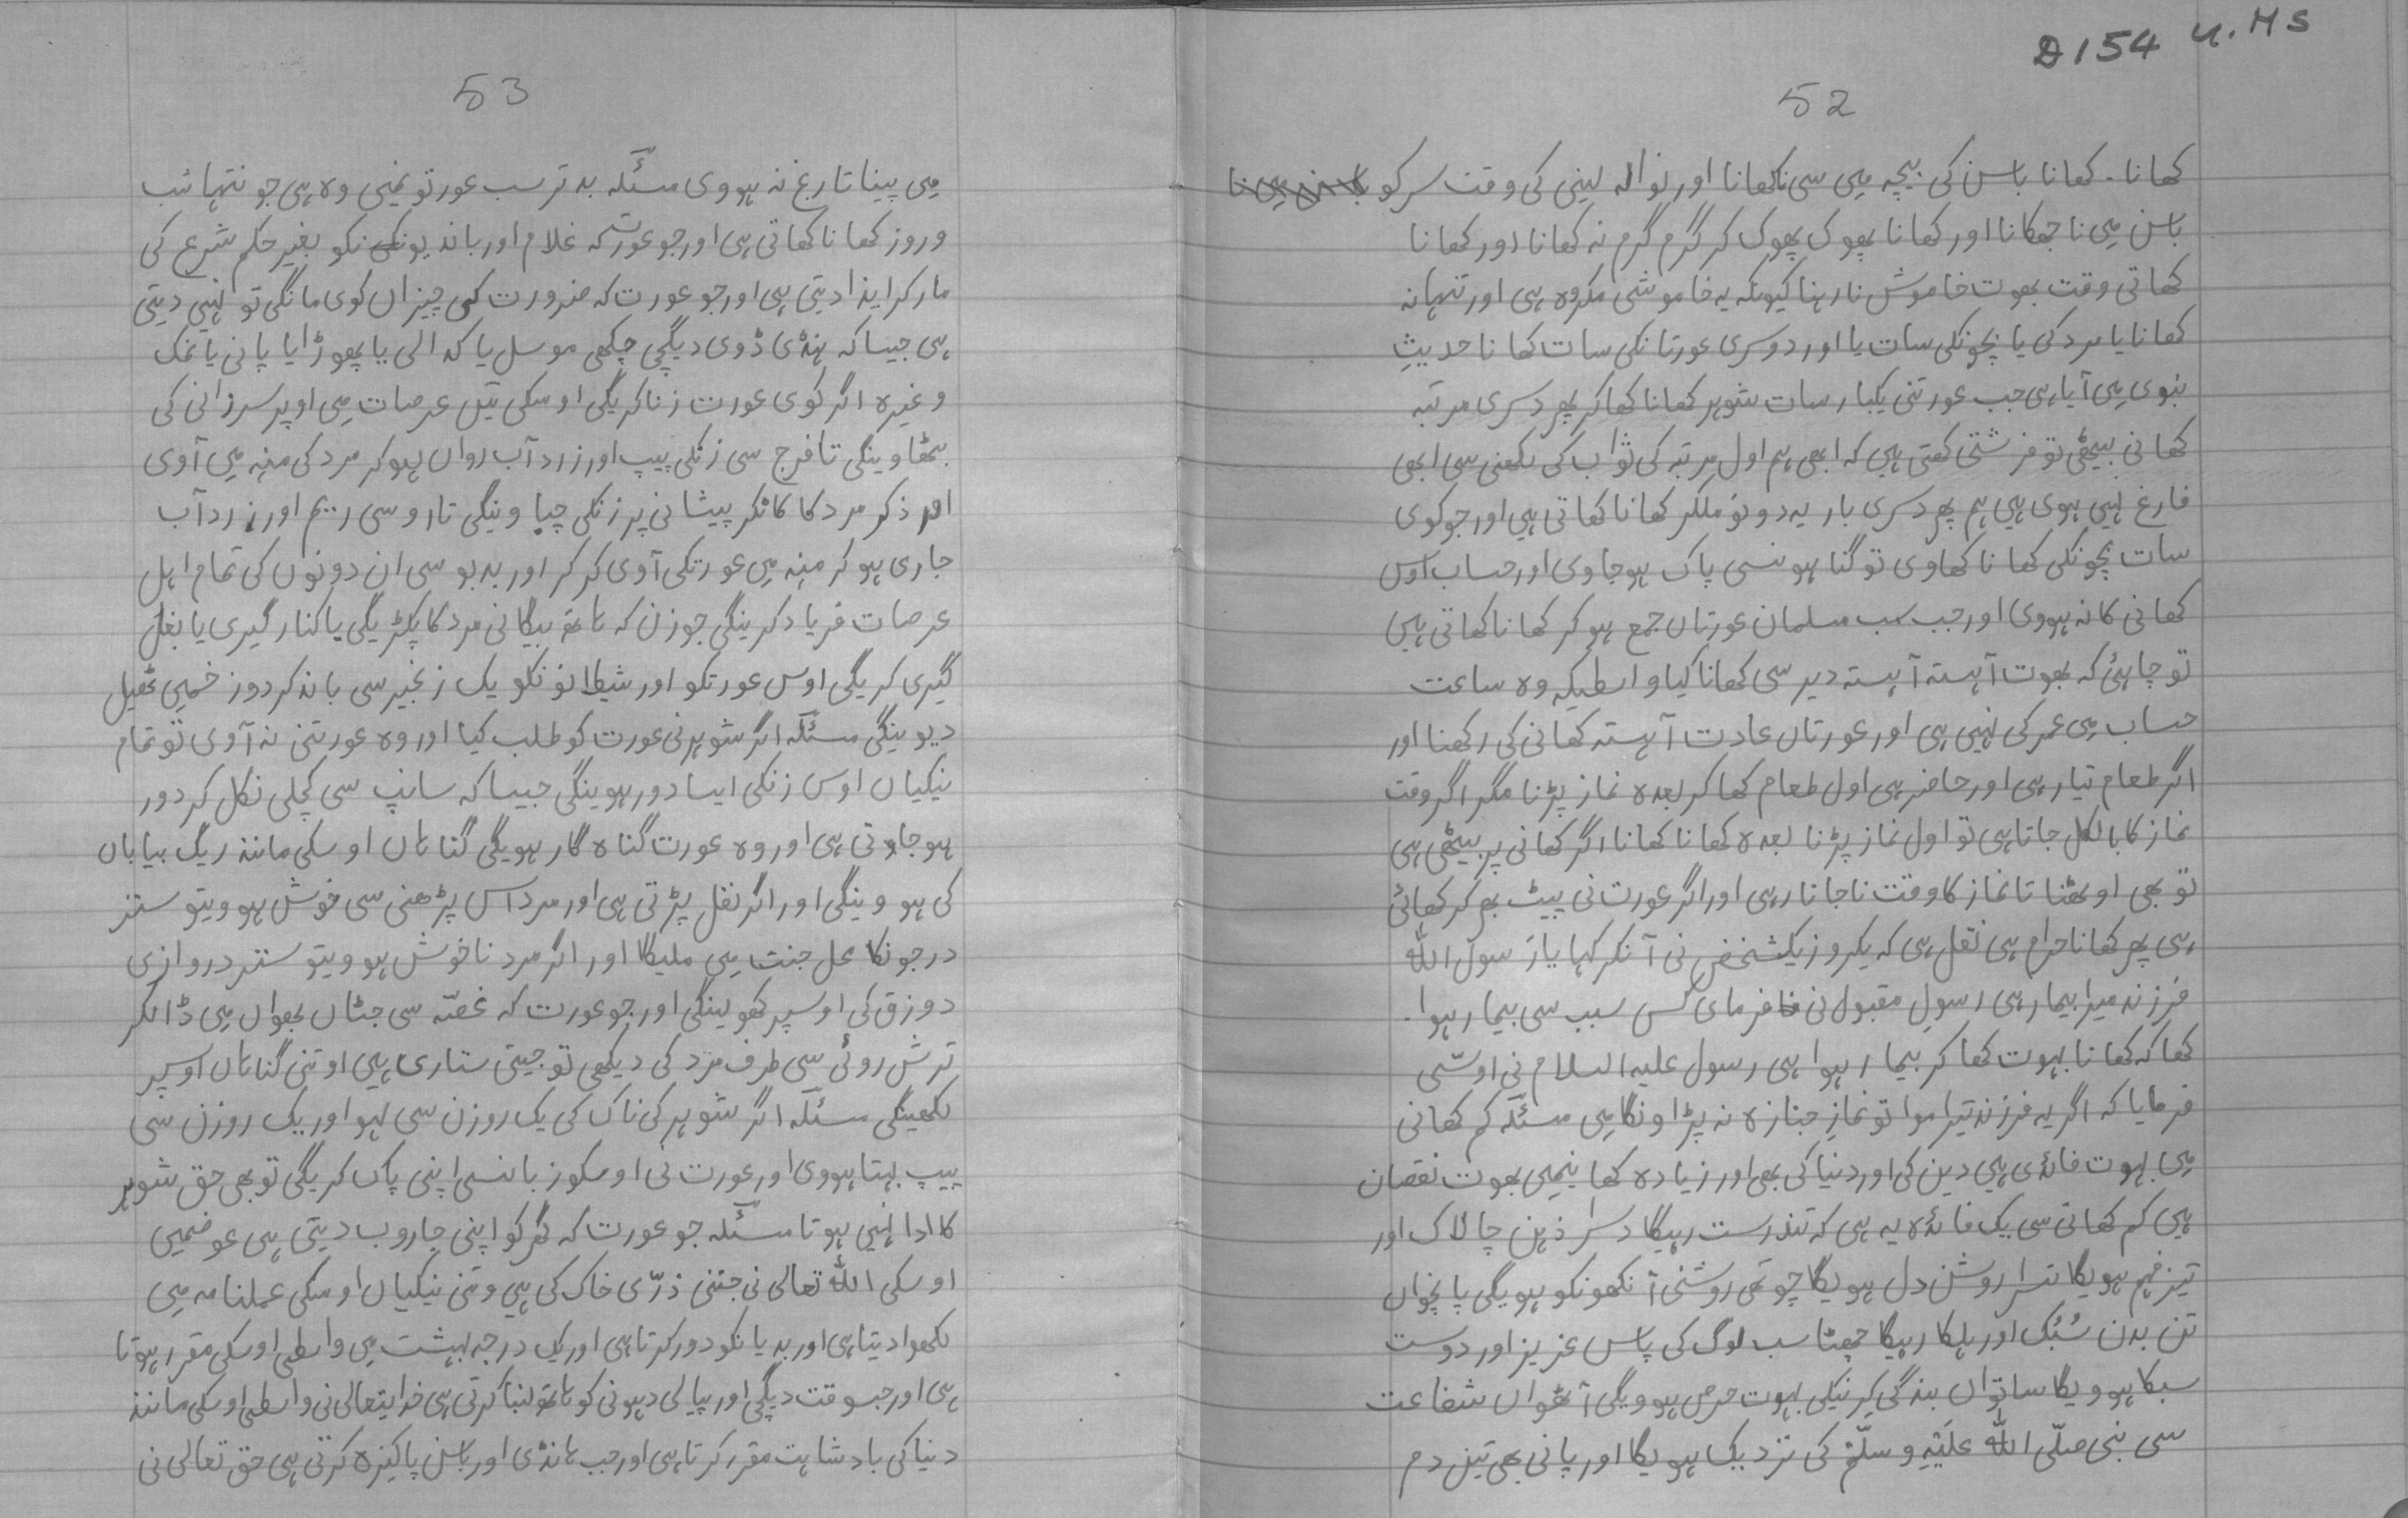 D 154 U.MS
52
کھانا۔ کھانا باسن کی بیچہ میں سی ناکھانا اور نوالہ لینی کی وقت سرکو
باسن میں نا جھکانا اور کھانا پھوک پھوک کر گرم گرم نہ کھانا اور کھانا
کھاتی وقت بھوت خاموش نارہنا کیونکہ یہ خاموشی مکروہ ہی اور تنہا نہ
کھانا یا مرد کی یا بچونکی سات یا اور دوسری عورتانکی سات کھانا حدیثِ
نبوی میں آیا ہی جب عورتنی یکبار سات شوہر کھانا کھا کر پھر دسری مرتبہ
کھانی بیٹھی تو فرشتی کھتی ہیں کہ ابھی ہم اول مرتبہ کی ثواب کی لکھنی سی ابھی
فارغ نہیں ہوی ہیں ہم پھر دسری بار یہ دونو ملکر کھانا کھاتی ہیں اور جو کوی
سات بچونکی کھانا کھاوی تو گنا ہونسی پاک ہوجاوی اور حساب اوس
کھانی کا نہ ہووی اور جب سب مسلمان عورتاں جمع ہو کر کھانا کھاتی ہیں
تو چاہئی کہ بھوت آہستہ آہستہ دیر سی کھانا کیا واسطیکہ وہ ساعت
حساب میں عمر کی نہیں ہی اور عورتاں عادت آہستہ کھانی کی رکھنا اور
اگر طعام تیار ہی اور حاضر ہی اول طعام کھا کر بعدہ نماز پڑنا مگر اگر وقت
نماز کا بالکل جاتا ہی تو اول نماز پڑنا بعدہ کھانا کھانا اگر کھانی پر بیٹھی ہی
تو بھی اوٹھنا تا نماز کا وقت ناجاتا رہی اور اگر عورت نی پیٹ بھر کر کھائی
ہی پھر کھانا حرام ہی نقل ہی کہ یکروز یکشخص نی آنکر کہا یا رسول اللہ
فرزند میرا بیمار ہی رسولِ مقبول نی فرمای کس سبب سی بیمار ہوا۔
کھا کہ کھانا بہوت کھا کر بیمار ہوا ہی رسول علیہ السلام نی اوسّی
فرمایا کہ اگر یہ فرزند تیرا موا تو نمازِ جنازہ نہ پڑاونگا میں مسئلہ کم کھانی
میں بہوت فائدی ہیں دین کی اور دنیا کی بھی اور زیادہ کھا نیمیں بھوت نقصان
ہیں کم کھانی سی یک فائدہ یہ ہی کہ تندرست رہیگا دسرا ذہن چالاک اور
تیز فہم ہویگا تسرا روشن دل ہویگا چوتھی روشنی آنکھونکو ہویگی پانچواں
تن بدن سُبُک اور ہلکا رہیگا چھٹا سب لوگ کی پاس عزیز اور دوست
سبکا ہوویگا ساتواں بندگی کرنیکی بہوت حرص ہوویگی آٹھواں شفاعت
سی نبی صلّی اللہ علیہِ وسلّم کی نزدیک ہویگا اور پانی بھی تین دم
53
میں پینا تارغ نہ ہووی مسئلہ بد تر سب عورتو نمیں وہ ہی جو تنہا شب
وروز کھانا کھاتی ہی اور جو عورت کہ غلام اور باندیونکو بغیر حکم شرع کی
مار کر ایذا دیتی ہی اور جو عورت کہ ضرورت کی چیزاں کوی مانگی تو نہیں دیتی
ہی جیسا کہ ہنڈی ڈوی دیگچی چکھی موسل یا کدالی یا پھوڑا یا پانی یا نمک
وغیرہ اگر کوی عورت زنا کریگی اوسکی تیں عرصات میں اوپر سرزانی کی
بٹھاوینگی تا فرج سی زنکی پیپ اور زرد آب رواں ہوکر مرد کی منہ میں آوی
اور ذکر مرد کا کاٹکر پیشانی پر زنکی چپا وینگی تا روسی ریم اور زرد آب
جاری ہو کر منہ میں عورتکی آوی کر کر اور بدبو سی ان دونوں کی تمام اہل
عرصات فریاد کرینگی جو زن کہ ہاتھ بیگانی مرد کا پکڑیگی یا کنار گیری یا بغل
گیری کریگی اوس عورتکو اور شیطانونکو یک زنجیر سی باندکر دوزخمیں ٹھیل
دیوینگی مسئلہ اگر شوہر نی عورت کو طلب کیا اور وہ عورتنی نہ آوی تو تمام
نیکیاں اوس زنکی ایسا دور ہوینگی جیسا کہ سانپ سی کچلی نکل کر دور
ہو جاوتی ہی اور وہ عورت گناہ گار ہویگی گناہاں اوسکی مانند ریگ بیاباں
کی ہووینگی اور اگر نفل پڑتی ہی اور مرد اس پڑھنی سی خوش ہوویتو ستر
درجونکا محل جنت میں ملیگا اور اگر مرد ناخوش ہوویتو ستر دروازی
دوزق کی اوسپر کھولینگی اور جو عورت کہ غصّہ سی جٹاں بھواں میں ڈالکر
ترش روئی سی طرف مرد کی دیکھی تو جیتی ستاری ہیں اوتنی گناہاں اوسپر
لکھینگی مسئلہ اگر شوہر کی ناک کی یک روزن سی لہو اور یک روزن سی
پیپ بہتا ہووی اور عورت نی اوسکو زبانسی اپنی پاک کریگی تو بھی حق شوہر
کا ادا نہیں ہوتا مسئلہ جو عورت کہ گھر کو اپنی جاروب دیتی ہی عوضمیں
اوسکی اللہ تعالی نی جتنی ذرّی خاک کی ہیں وتنی نیکیاں اوسکی عملنامہ میں
لکھوا دیتا ہی اور بدیانکو دور کرتا ہی اور یک درجہ بہشت میں واسطی اوسکی مقرر ہوتا
ہی اور جسوقت دیگچی اور پیالی دہونی کو ہاتھ لنبا کرتی ہی خدایتعالی نی واسطی اوسکی مانند
دنیا کی بادشاہت مقرر کرتا ہی اور جب ہانڈی اور باسن پاکیزہ کرتی ہی حق تعالی نی